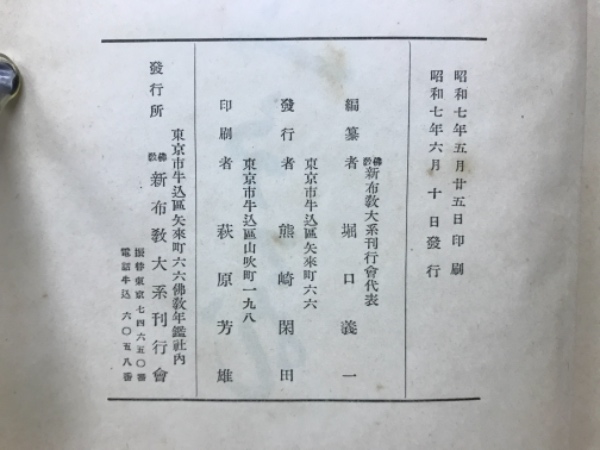 昭和七年五月廿五日印刷
昭和七年六月十日發行
佛教新布教大系刊行會代表
編纂者 堀口義一
東京市牛込區矢來町六六
發行者 熊崎閑田
東京市牛込區山吹町一九八
印刷者 萩原芳雄
東京市牛込區矢來町六六佛敎年鑑社内
發行所 佛教新布敎大系刊行會
振替東京七四六五〇番
電話牛込六〇五八番